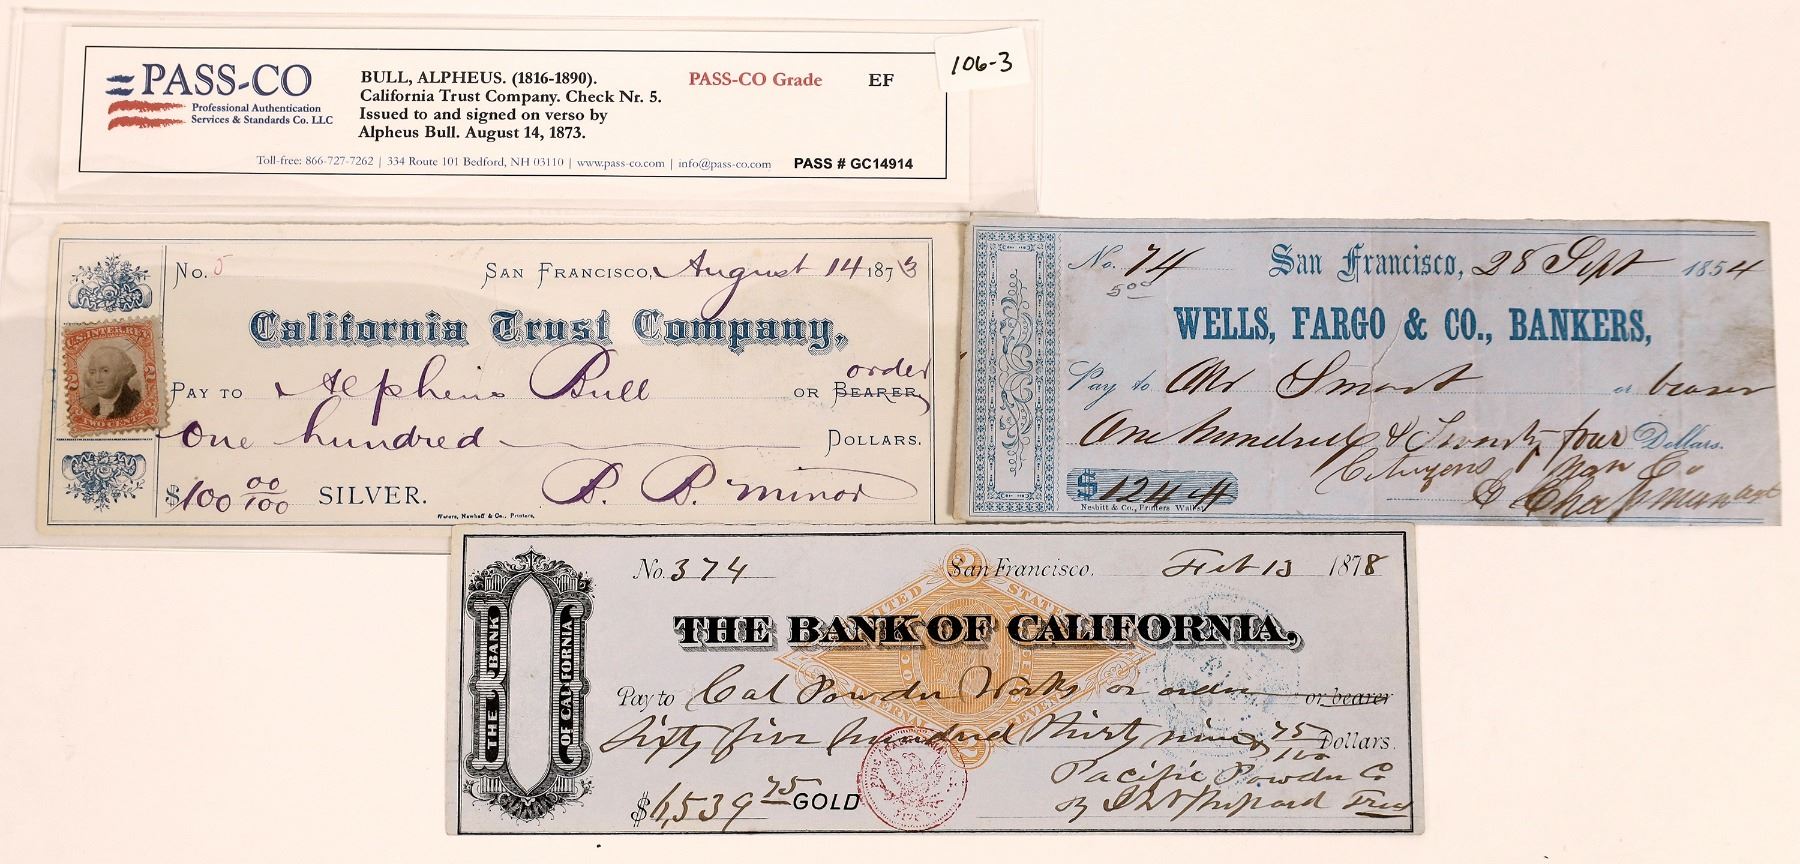 PASS-CO
Professional Authentication
Services & Standards Co. LLC
BULL, ALPHEUS. (1816-1890).
California Trust Company. Check Nr. 5.
Issued to and signed on verso by
Alpheus Bull. August 14, 1873.
PASS-CO Grade EF
Toll-free: 866-727-7262 | 334 Route 101 Bedford, NH 03110 | www.pass-co.com | info@pass-co.com PASS # GC14914
106-3
No. 5 SAN FRANCISCO, August 14 1873
California Trust Company,
U.S. INTER. REV.
TWO CENTS
PAY TO Alpheus Bull OR BEARER order
One hundred DOLLARS.
$100 00/100 SILVER. B. B. Minor
Waters, Newhoff & Co., Printers,
No. 74 San Francisco, 28 Sept 1854
500
WELLS, FARGO & CO., BANKERS,
Pay to Mr Smart or bearer
One hundred & Twenty four Dollars.
$124 4 Co
Chapman agt
Nesbitt & Co., Printers Wall st
No. 374 San Francisco. Feb 13 1878
UNITED STATES
THE BANK OF CALIFORNIA,
THE BANK OF CALIFORNIA
Pay to Cal Powder Works or order or bearer
INTERNAL REVENUE
Sixty five hundred thirty nine 75/100 Dollars.
Pacific Powder Co
$6,539 75 GOLD by Shepard Treas